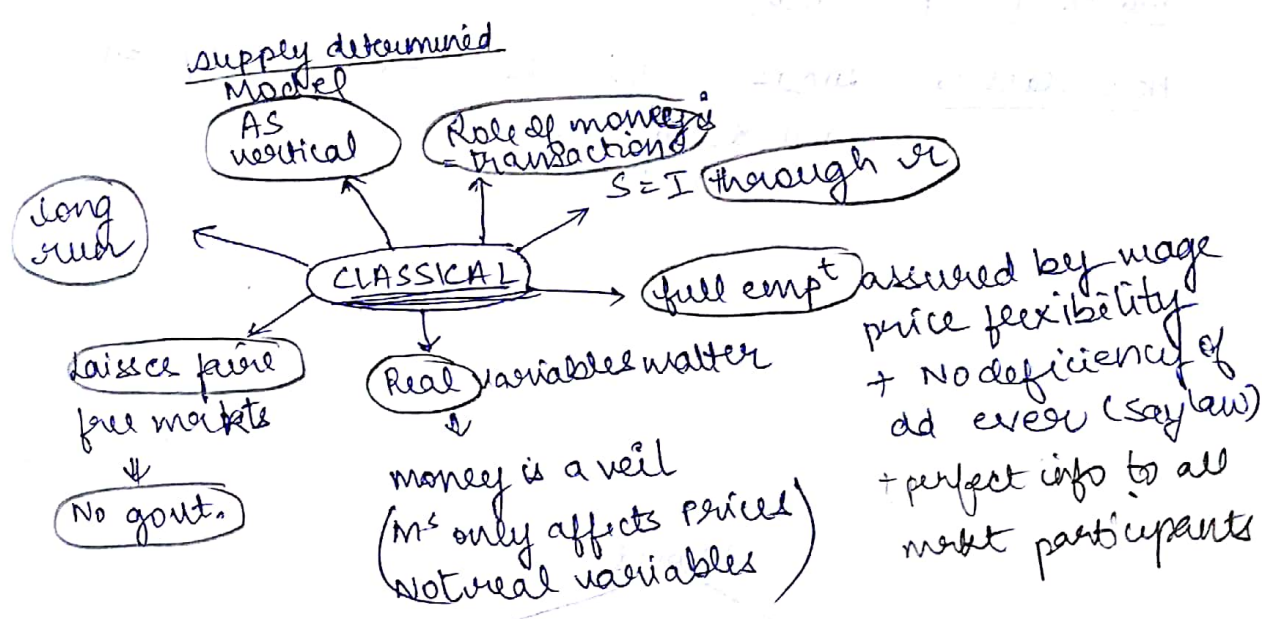 supply determined
Model
AS
vertical
Role of money is
= transactions
S = I through r
long
run
CLASSICAL
full empt assured by wage
price flexibility
+ No deficiency of
dd ever (Say law)
+ perfect info to all
mrkt participants
Laissee faire
free markts
⇓
No govt.
Real variables matter
⇓
money is a veil
(Ms only affects prices
Not real variables)